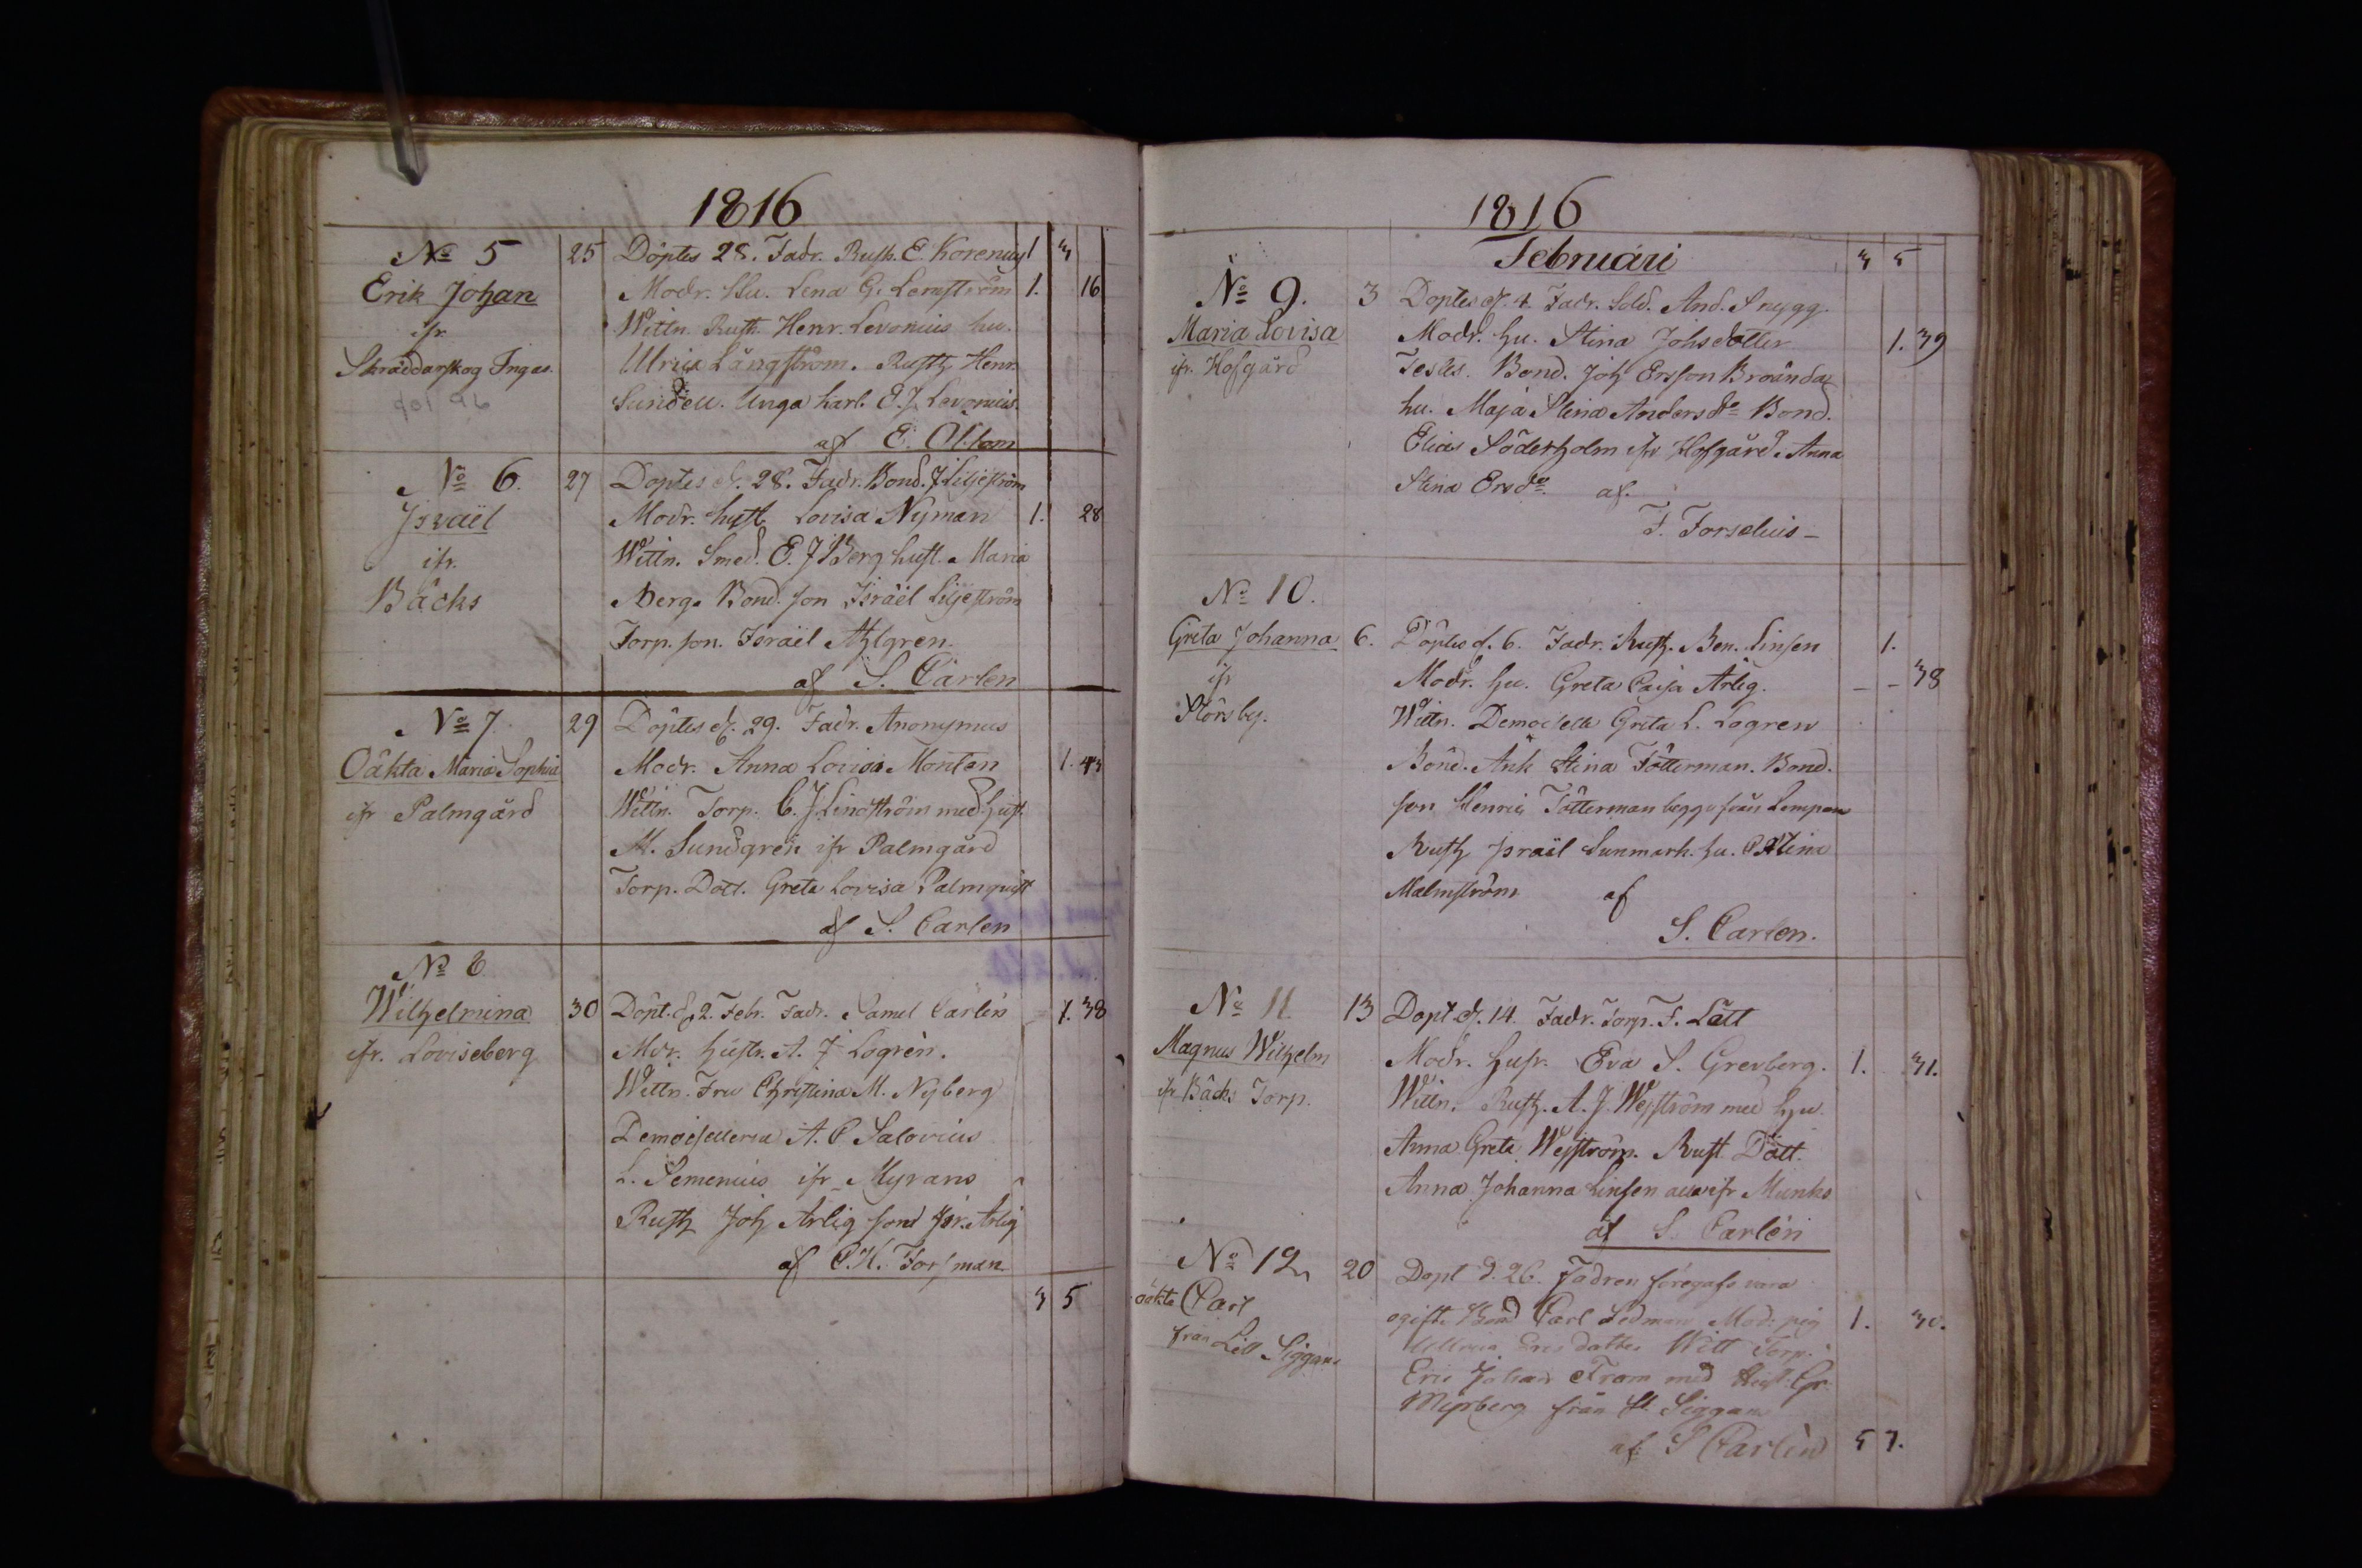 1816
No 5
25
Döptes 28. Fadr. Rusth. E. Korenius
1
3
Erik Johan
Modr. Hu. Lena G. Lernström
1.
16
ifr.
Wittn. Rusth. Henr. Levonius hu.
Skräddarskog Ingas.
Ulrica Långström. Rusth Henr.
Sundell. Unga karl. E. J. Levonius.
af E.
No 6.
27
Döptes d. 28. Fadr. Bond. J Liljeström
Israël
Modr. hust. Lovisa Nyman
1.
28
ifr.
Wittn. Smed. E. J Berg hust. Maria
Bäcks
Berg. Bond. son Israël Liljeström
Torp. son. Israël Ahlgren.
af S. Carlen
No 7.
29
Döptes d. 29. Fadr. Anonymus
Oäkta Maria Sophia
Modr. Anna Lovisa Monten
1.
43
ifr Palmgård
Wittn. Torp. C. J Lindström med hust.
M. Sundgren ifr Palmgård
Torp. Dott. Greta Lovisa Palmquist
af S. Carlen
No 8
Wilhelmina
30
Döpt. d. 2. Febr. Fadr. Samel Carlén
1.
38
ifr. Loviseberg
Mdr. hustr. A. J Logrén.
Wittn. Fru Christina M. Nyberg
Demoisellerna A. C Salovius
L. Semenius ifr Myrans
Rusth Joh Arlig son Isr. Arlig
af C. H. Forsman
3 5
1816
Februari
3 5
No 9.
3
Doptes d. 4. Fadr. Sold. And. Snygg.
Maria Lovisa
Modr. hu. Stina Johsdotter
1. 39
ifr. Hofgård
Testes. Bond. Joh Ersson Brända
hu. Maja Stina Andersdr Bond.
Elias Söderholm ifr Hofgård. Anna
Stina Ersdr. af.
F. Forselius –
No 10.
Greta Johanna
6.
Döptes d. 6. Fadr. Rusth. Ben. Linsen
1.
ifr
Modr. hu. Greta Caisa Arlig.
– – 38
Störsby.
Wittn. Demoiselle Greta L. Logren
Bond. Änk Stina Tötterman. Bond.
son Henric Tötterman begge från Lempans
Rusth Israël Sunmark. hu. C Stina
Malmström af
S. Carlen.
No 11.
13
Dopt d. 14. Fadr. Torp. F. Lätt
Magnus Wilhelm
Modr. husr. Eva S. Grevberg.
1.
31.
ifr Bäcks Torp.
Wittn. Rusth. A. J. Wejström med hu.
Anna Greta Wejström. Rust Dött.
Anna Johanna Linsen alla ifr Munks
af S. Carlén
No 12
20
Dopt d. 26. Fadren föregafs vara
oäkta Carl
ogifte Bond Carl Sedman Mod: pig
1.
30.
från Lill Siggans
Ulrica Ersdotter Witt Torp.
Eric Johan From med Hust. Gr.
Myrberg från Siggans
af S Carlén
5 7.